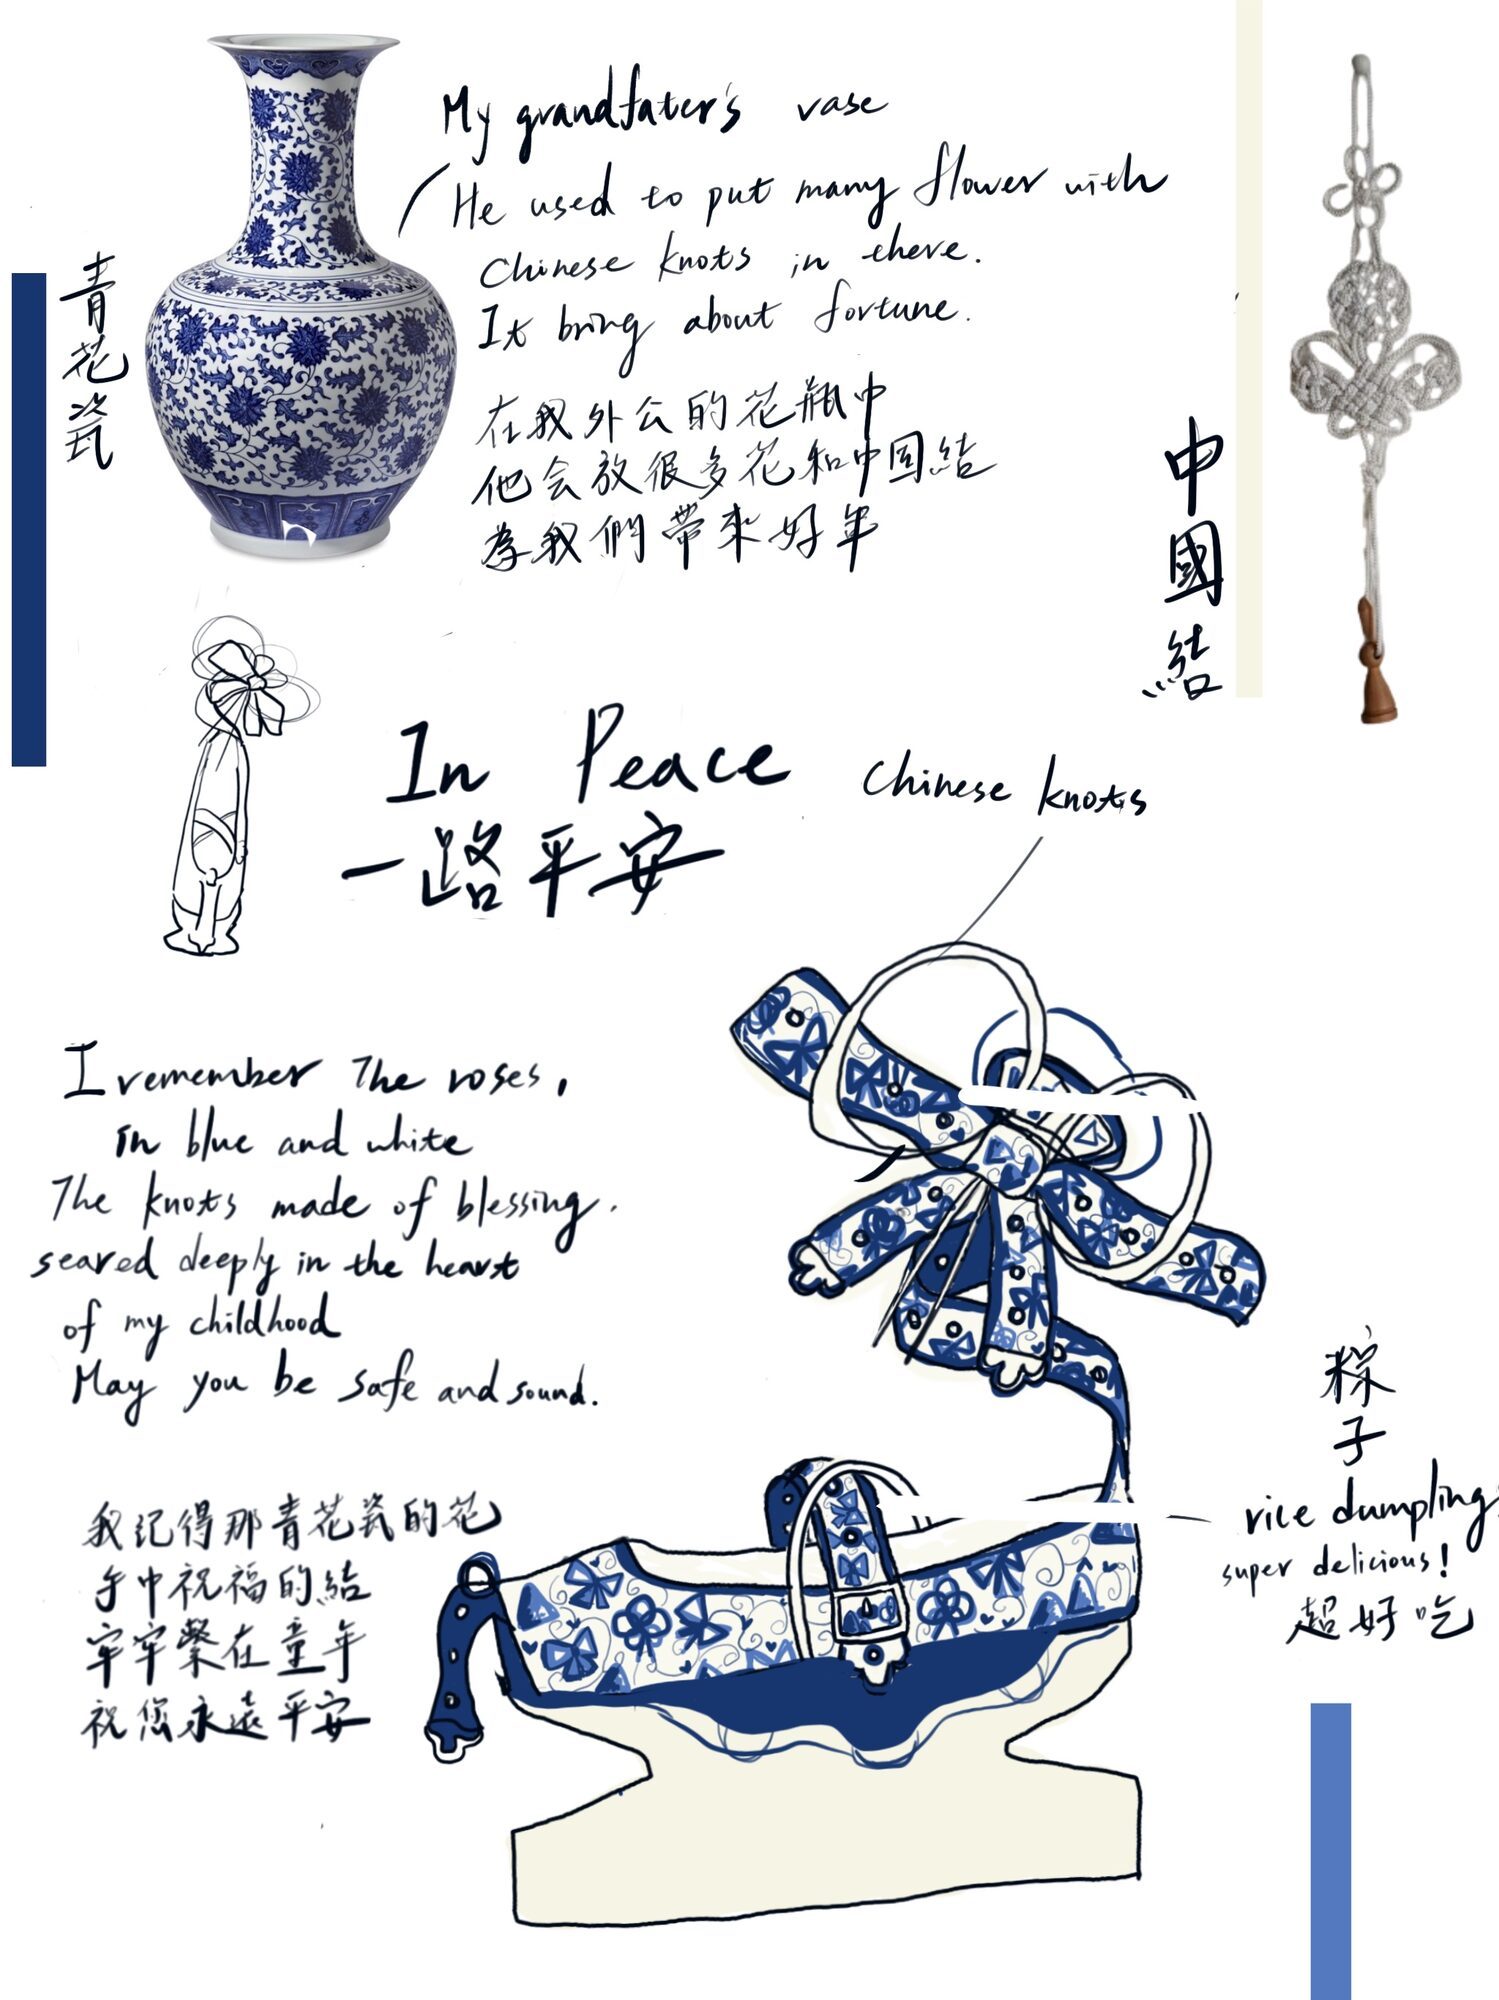 My grandfater's vase
He used to put many flower with
Chinese knots in there.
It bring about fortune.
青花瓷
在我外公的花瓶中
他会放很多花和中国結
為我們帶來好年
中國結
In Peace
一路平安
Chinese knots
I remember The roses,
in blue and white
The knots made of blessing.
seared deeply in the heart
of my childhood
May you be safe and sound.
粽子
rice dumpling
super delicious!
超好吃
我记得那青花瓷的花
手中祝福的結
牢牢繫在童年
祝您永遠平安